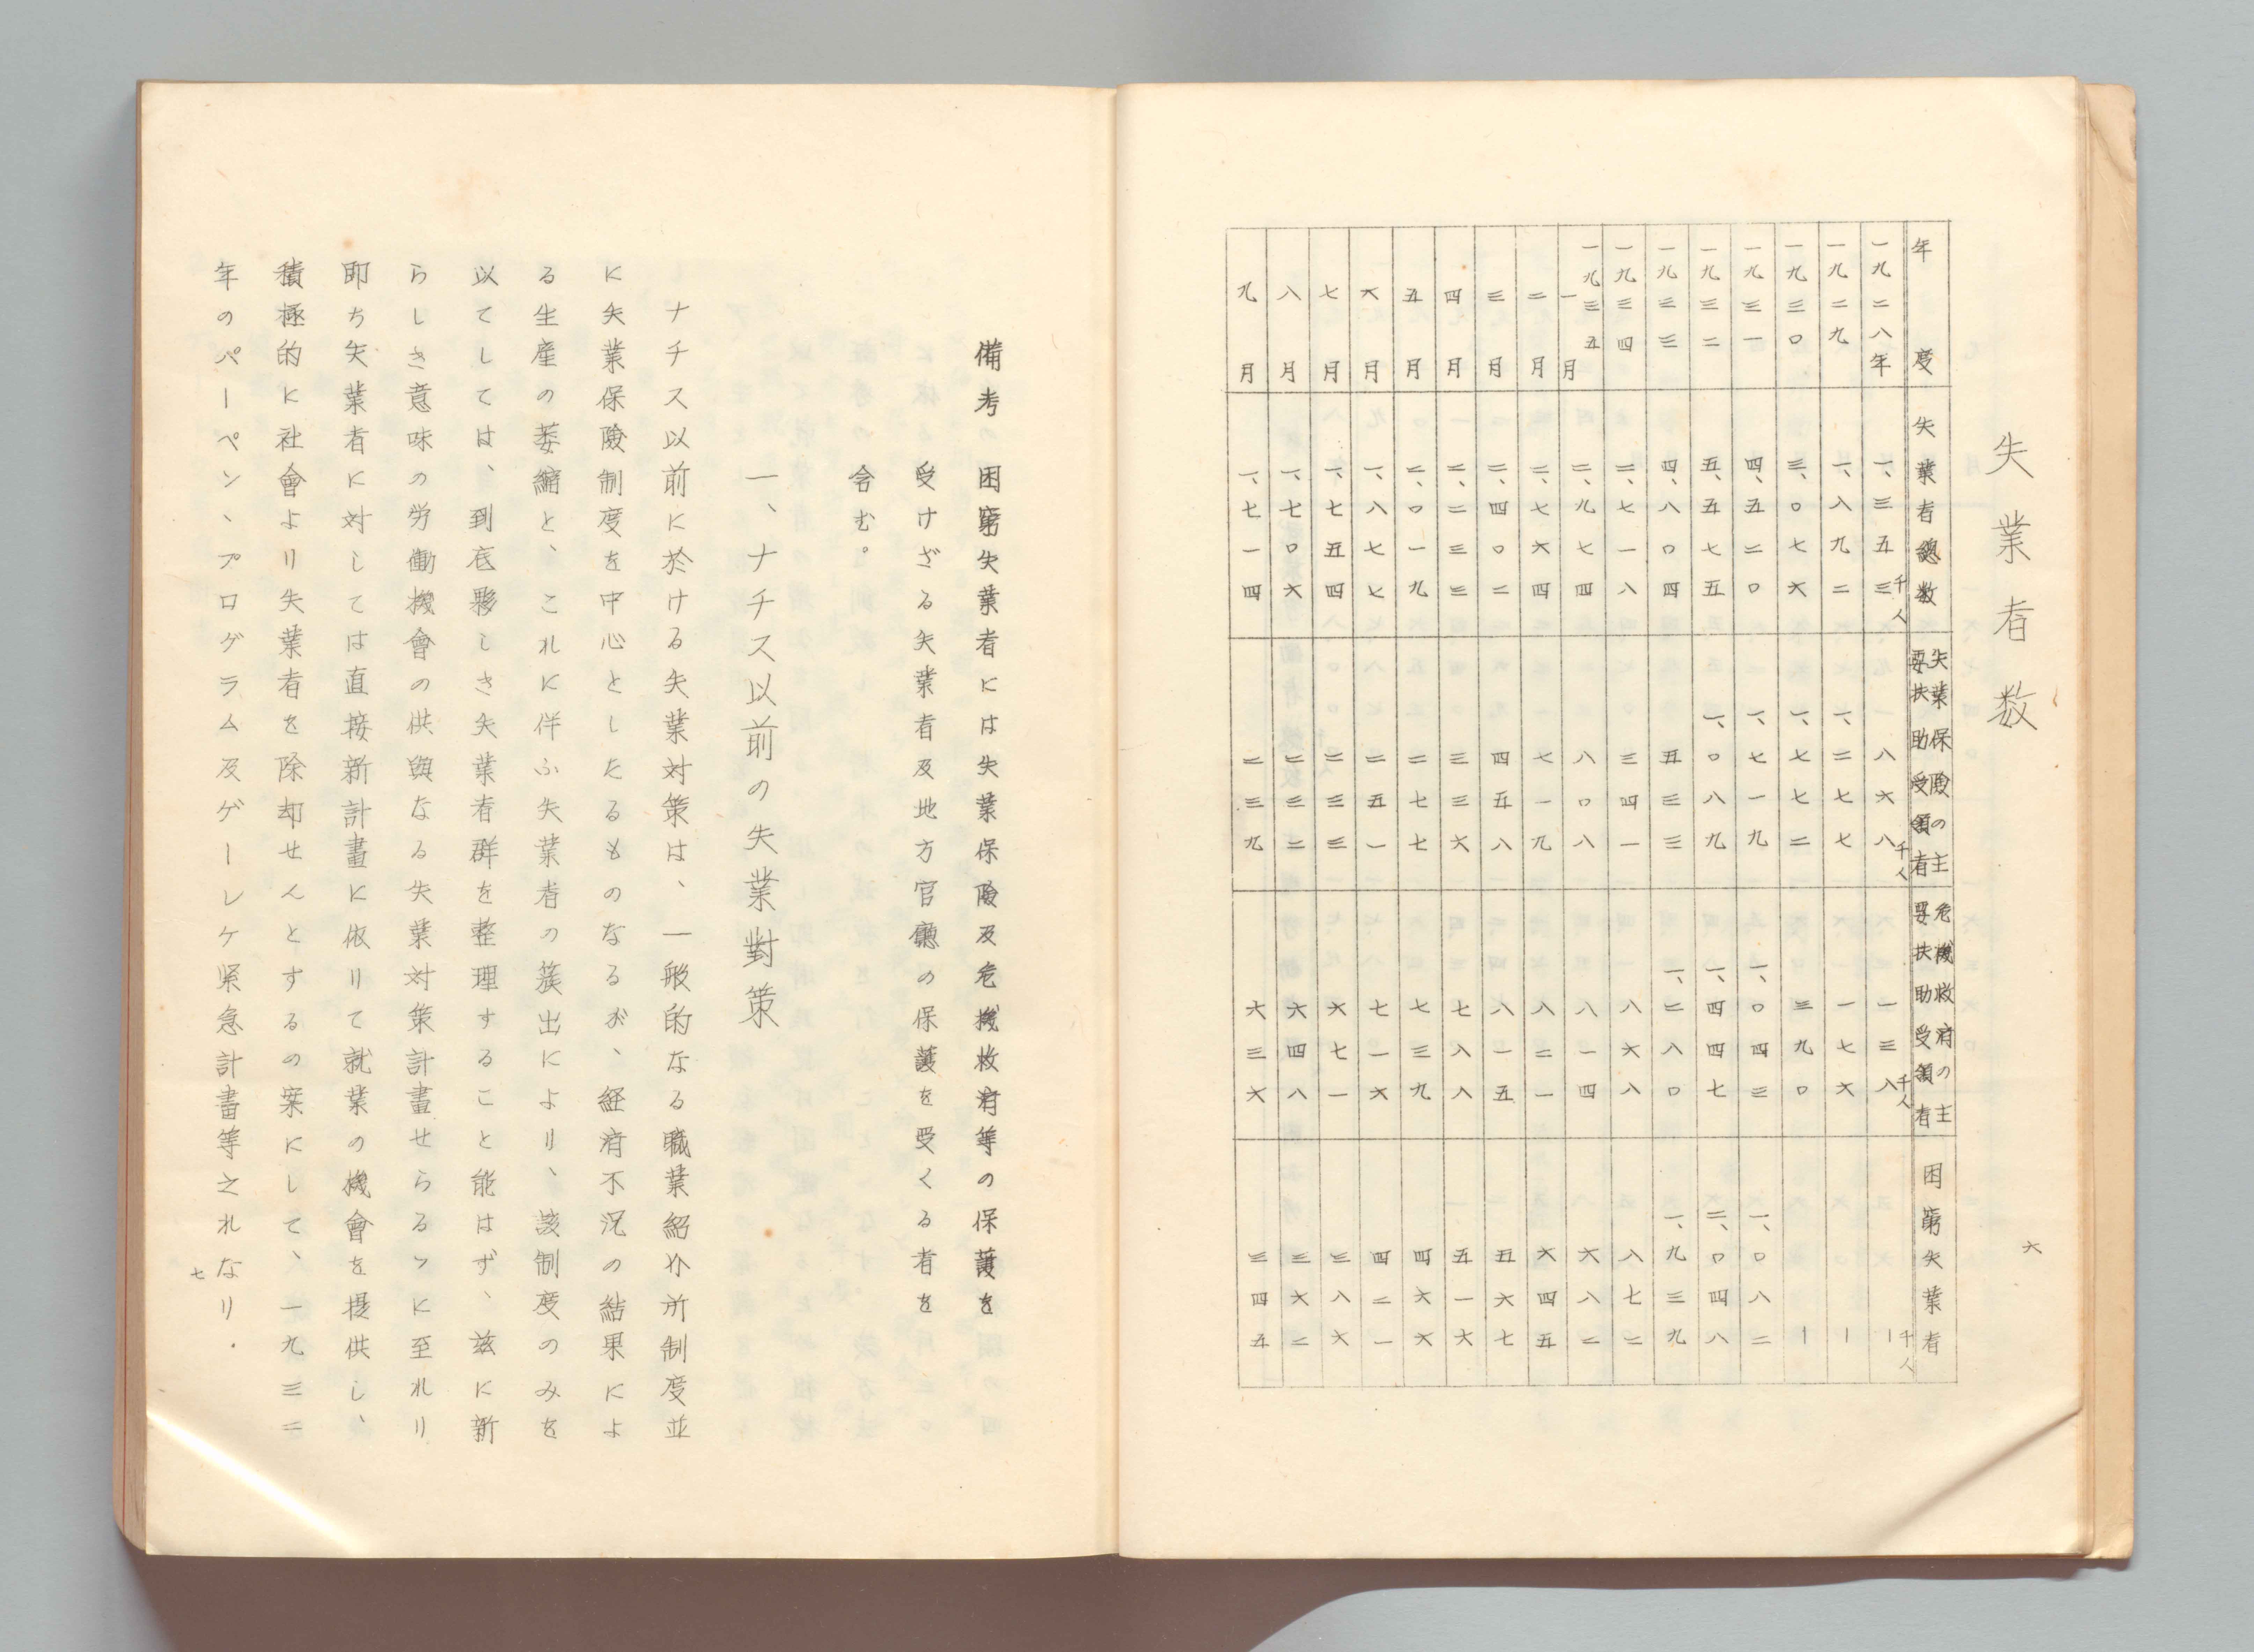 六
失業者数
年度 失業者總数 失業保險の主要扶助受領者 危機救済の主要扶助受領者 困窮失業者
一九二八年 一、三五三千人 八六八千人 一三八千人 ー千人
一九二九 一、八九二 一、二七七 一七六 ー
一九三〇 三、〇七六 一、七七二 三九〇 ー
一九三一 四、五二〇 一、七一九 一、〇四三 一、〇八二
一九三二 五、五七五 一、〇八九 一、四四七 二、〇四八
一九三三 四、八〇四 五三三 一、二八〇 一、九三九
一九三四 二、七一八 三四一 八六八 八七二
一九三五 一月 二、九七四 八〇八 八一四 六八二
二月 二、七六四 七一九 八二一 六四五
三月 二、四〇二 四五八 八一五 五六七
四月 二、二三三 三三六 七八八 五一六
五月 二、〇一九 二七七 七三九 四六六
六月 一、八七七 二五一 七一六 四二一
七月 一、七五四 二三三 六七一 三八六
八月 一、七〇六 二三二 六四八 三六二
九月 一、七一四 二三九 六三六 三四五
備考 困窮失業者には失業保險及危機救済等の保護を
受けざる失業者及地方官廳の保護を受くる者を
含む。
一、ナチス以前の失業對策
ナチス以前に於ける失業対策は、一般的なる職業紹介所制度並
に失業保險制度を中心としたるものなるが、経済不況の結果によ
る生産の萎縮と、これに伴ふ失業者の簇出により、該制度のみを
以てしては、到底夥しき失業者群を整理すること能はず、茲に新
らしき意味の労働機會の供與なる失業対策計畫せらるゝに至れり
即ち失業者に対しては直接新計畫に依りて就業の機會を提供し、
積極的に社會より失業者を除却せんとするの案にして、一九三二
年のパーペン、プログラム及ゲーレケ緊急計畫等之れなり.
七